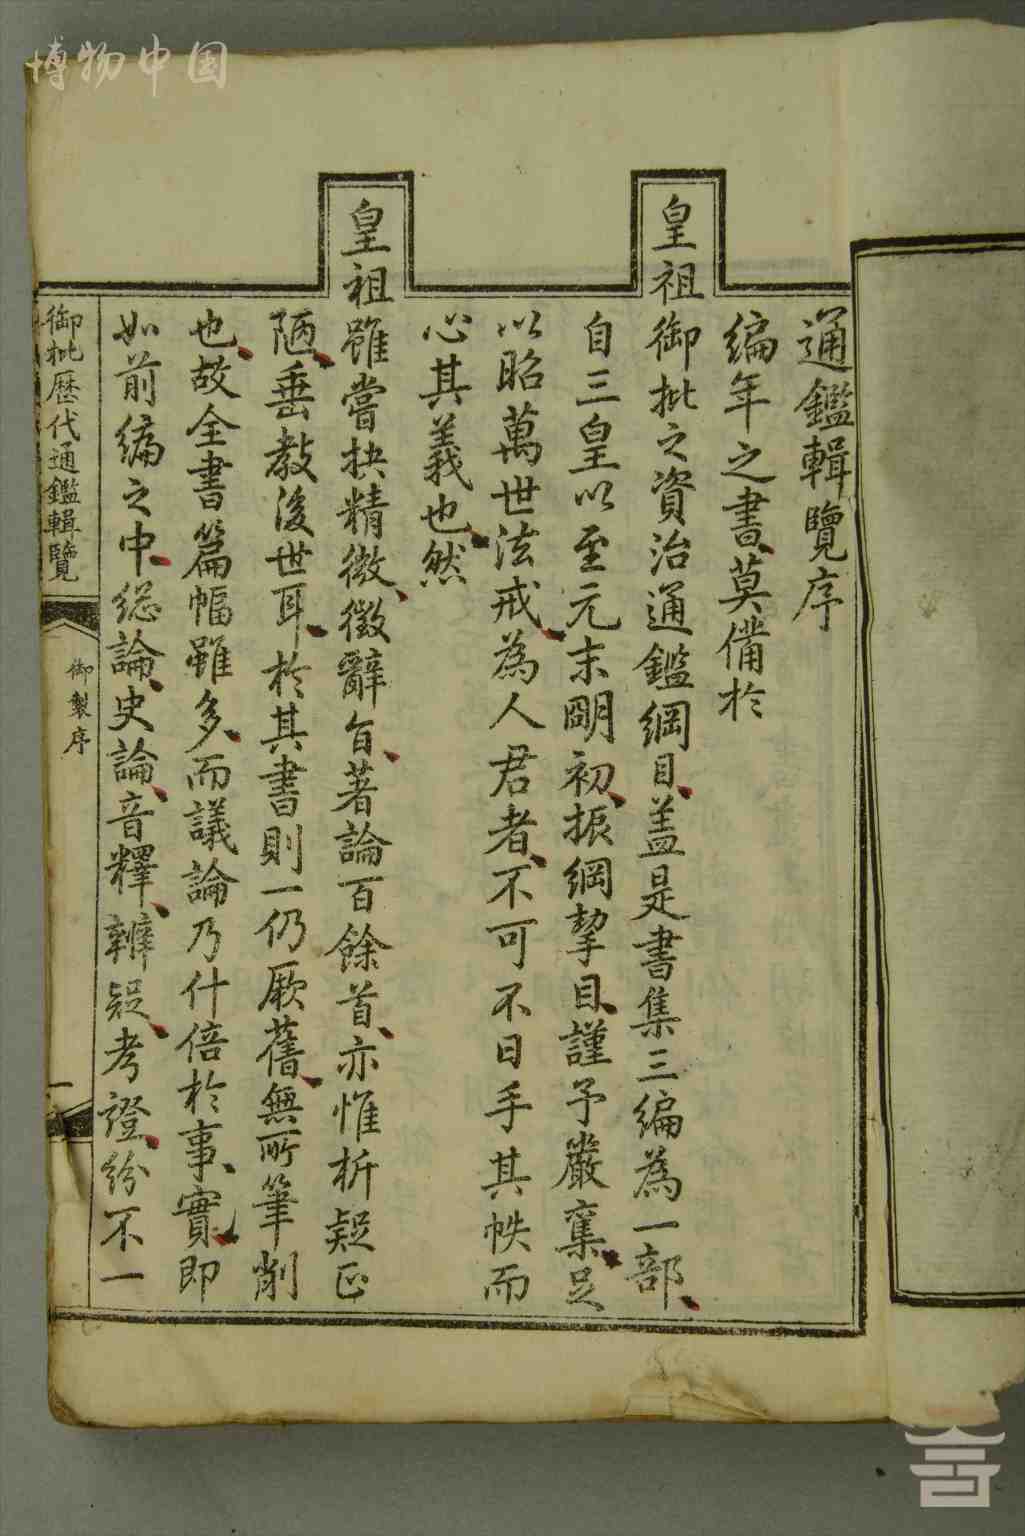 博物中国
通鑑輯覽序
編年之書莫備於
皇祖御批之資治通鑑綱目蓋是書集三編為一部
自三皇以至元末明初振綱挈目謹予嚴奪足
以昭萬世法戒為人君者不可不日手其帙而
心其義也然
皇祖雖嘗抉精微徵辭旨著論百餘首亦惟析疑正
陋垂教後世耳於其書則一仍厥舊無所筆削
也故全書篇幅雖多而議論乃什倍於事實即
如前編之中總論史論音釋辨疑考證紛不一
御批歷代通鑑輯覽
御製序
一